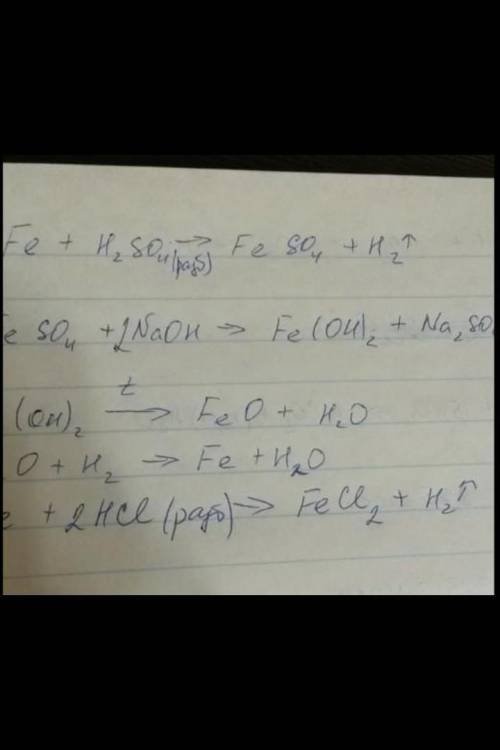 Fe + H₂SO₄ (разб) → FeSO₄ + H₂↑
e SO₄ + 2NaOH → Fe(OH)₂ + Na₂SO
(OH)₂ t→ FeO + H₂O
O + H₂ → Fe + H₂O
e + 2HCl (разб) → FeCl₂ + H₂↑